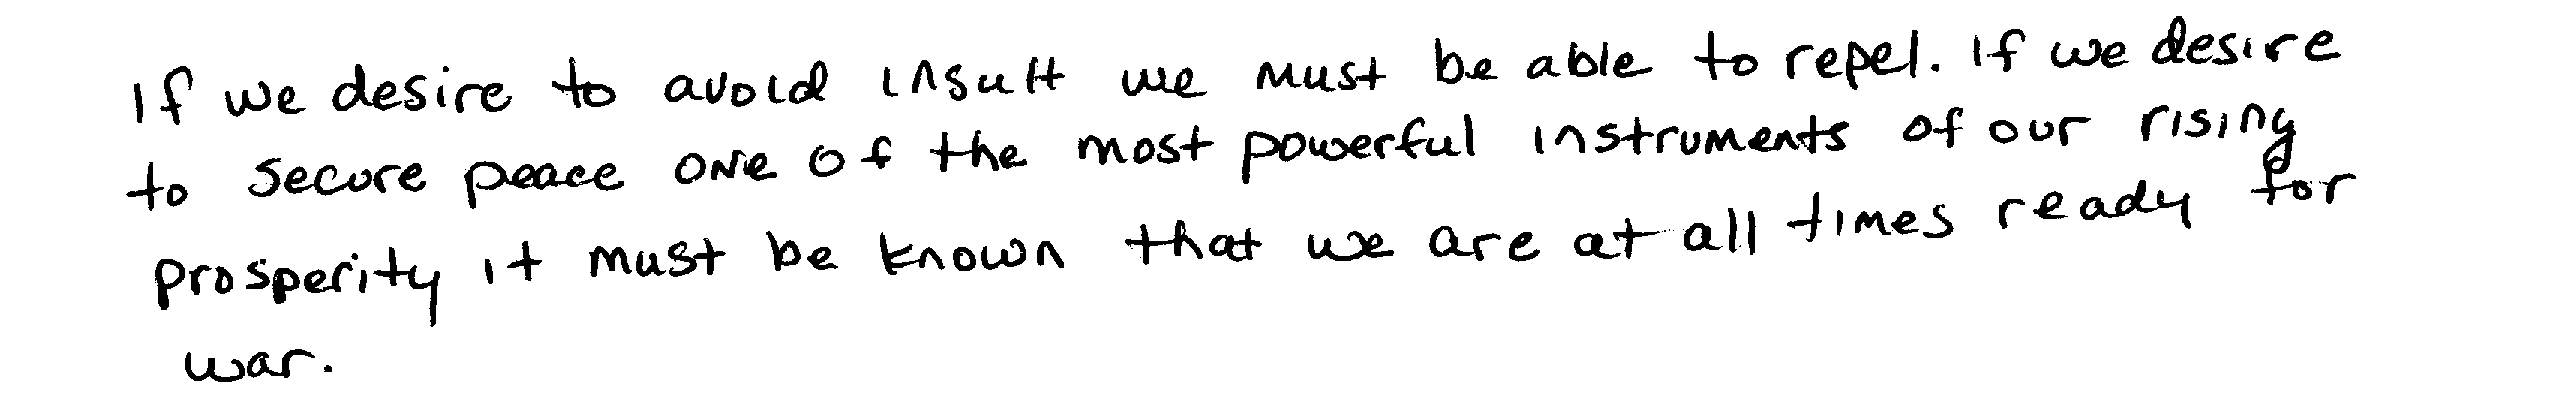 If we desire to avoid insult we must be able to repel. If we desire
to secure peace one of the most powerful instruments of our rising
prosperity it must be known that we are at all times ready for
war.